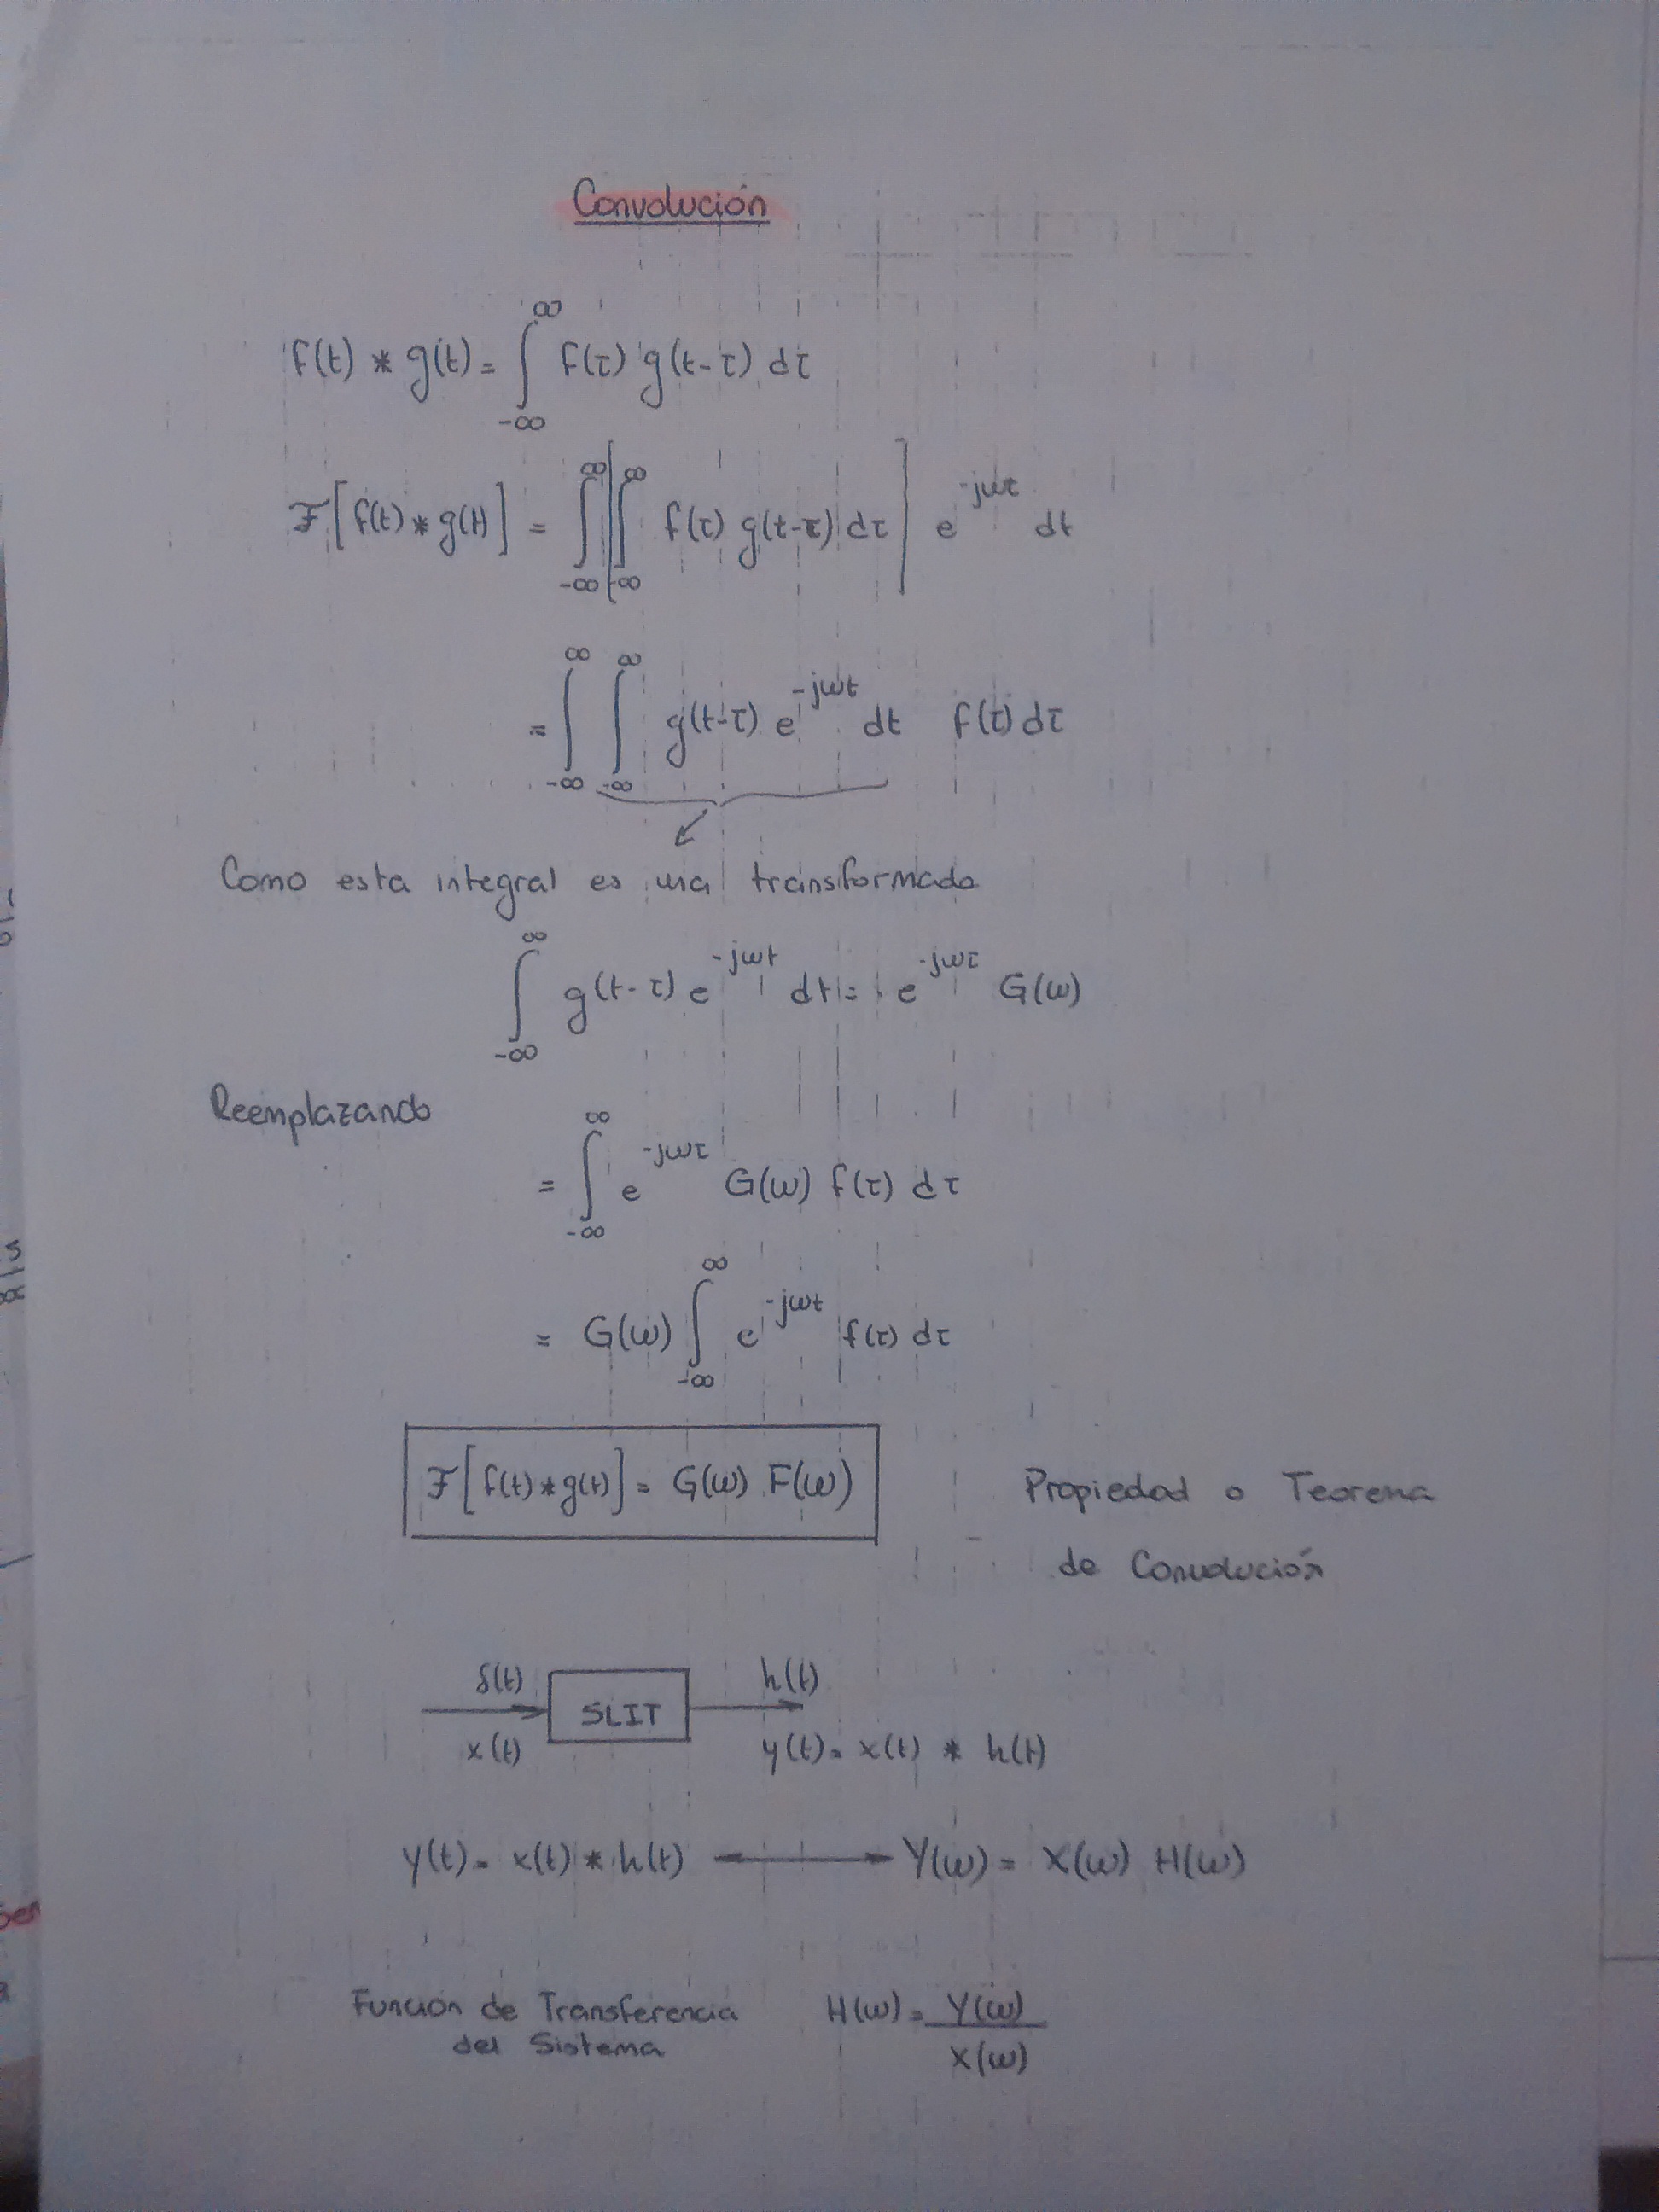 Convolución
f(t) * g(t) = ∫_{-∞}^{∞} f(τ) g(t-τ) dτ
ℱ[f(t) * g(t)] = ∫_{-∞}^{∞} [∫_{-∞}^{∞} f(τ) g(t-τ) dτ] e^{-jωt} dt
= ∫_{-∞}^{∞} ∫_{-∞}^{∞} g(t-τ) e^{-jωt} dt f(τ) dτ
Como esta integral es una transformada
∫_{-∞}^{∞} g(t-τ) e^{-jωt} dt = e^{-jωτ} G(ω)
Reemplazando
= ∫_{-∞}^{∞} e^{-jωτ} G(ω) f(τ) dτ
= G(ω) ∫_{-∞}^{∞} e^{-jωt} f(τ) dτ
ℱ[f(t) * g(t)] = G(ω) F(ω) Propiedad o Teorema
de Convolución
δ(t) h(t)
SLIT
x(t) y(t) = x(t) * h(t)
y(t) = x(t) * h(t) ⟷ Y(ω) = X(ω) H(ω)
Función de Transferencia H(ω) = Y(ω)
del Sistema X(ω)